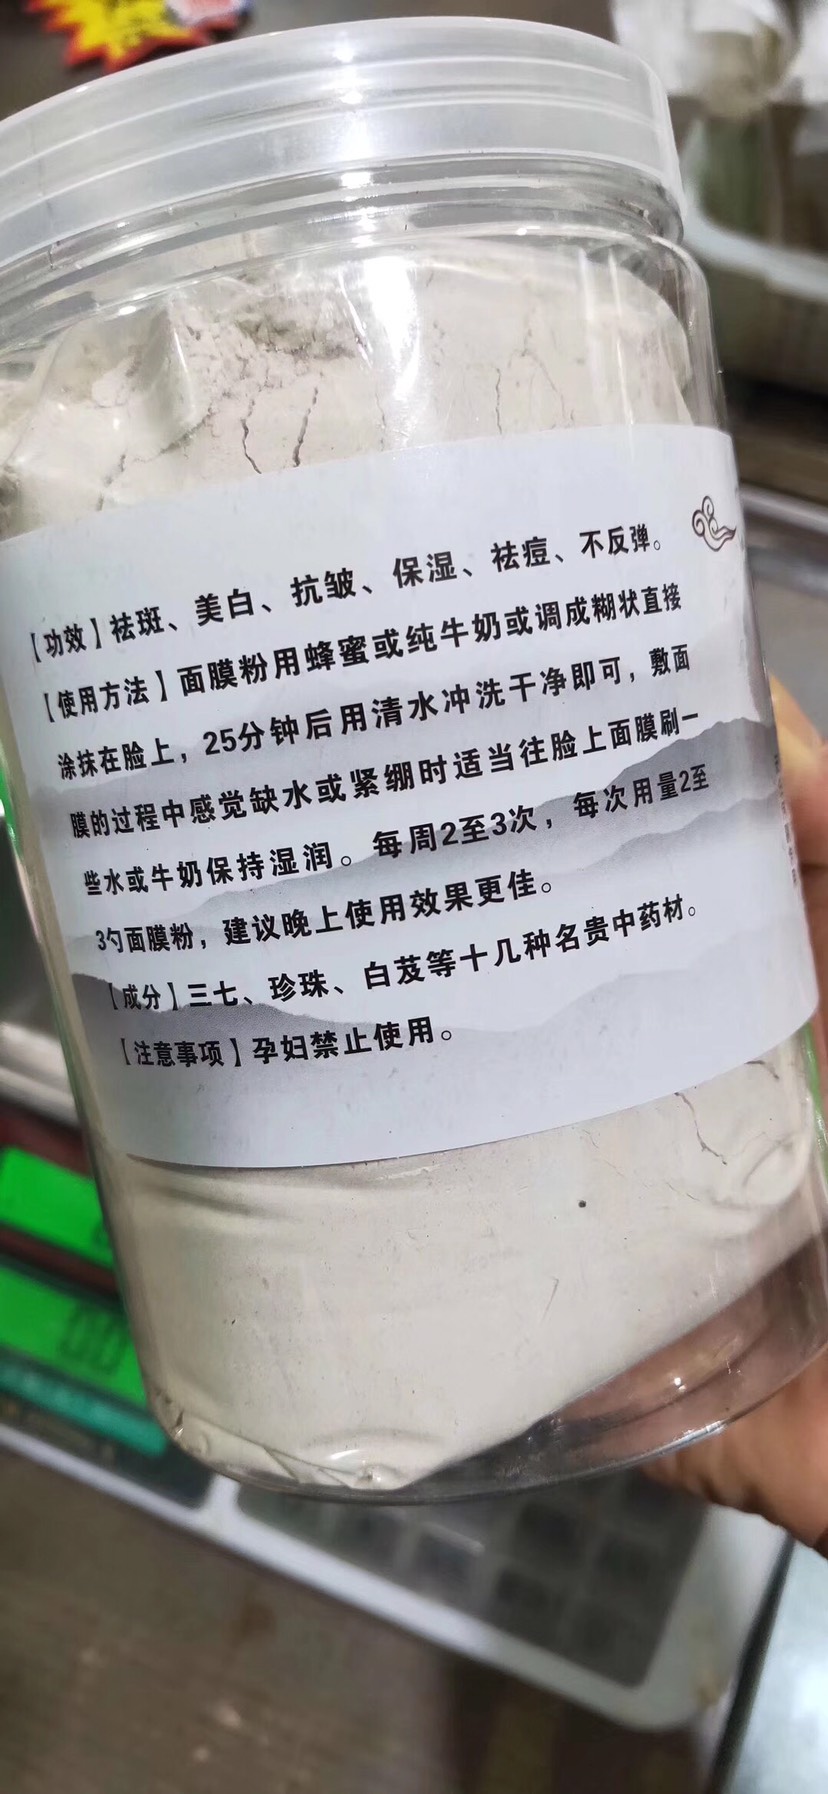 【功效】祛斑、美白、抗皱、保湿、祛痘、不反弹。
【使用方法】面膜粉用蜂蜜或纯牛奶或调成糊状直接
涂抹在脸上，25分钟后用清水冲洗干净即可，敷面
膜的过程中感觉缺水或紧绷时适当往脸上面膜刷一
些水或牛奶保持湿润。每周2至3次，每次用量2至
3勺面膜粉，建议晚上使用效果更佳。
【成分】三七、珍珠、白芨等十几种名贵中药材。
【注意事项】孕妇禁止使用。